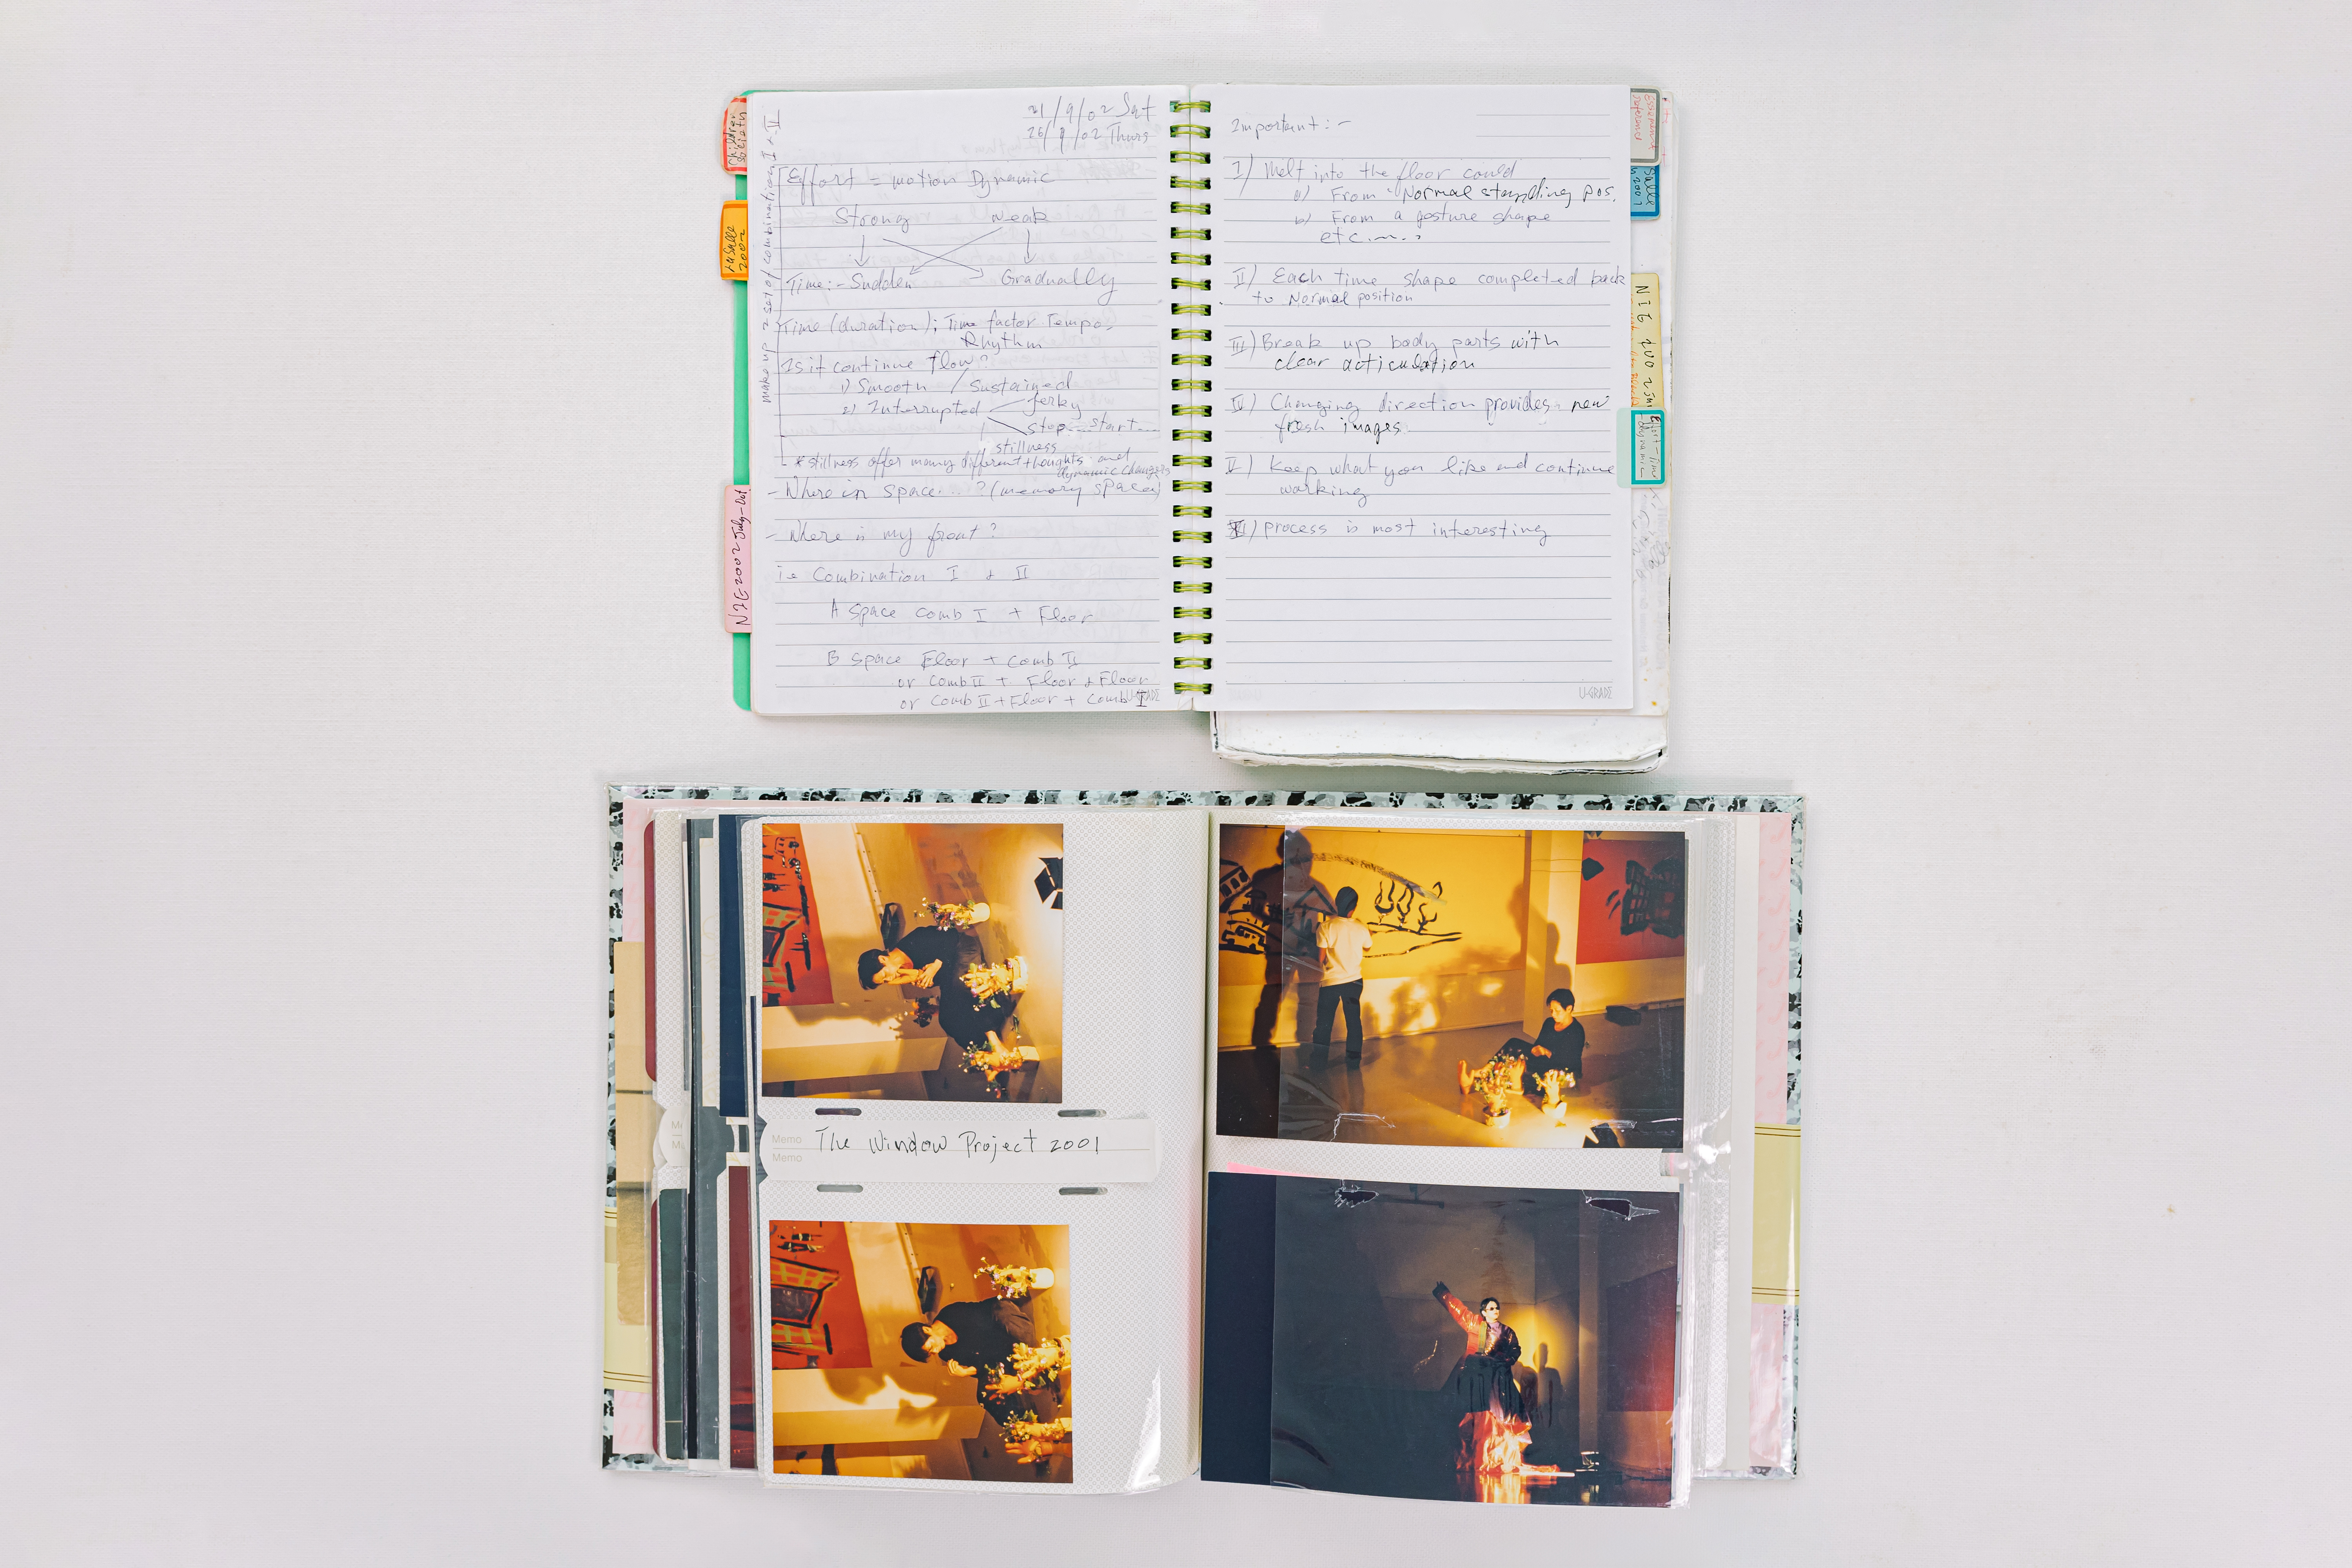 21/9/02 Sat
26/9/02 Thurs
make up a set of combination I + II
Effort = motion Dynamic
Strong weak
Time:- Sudden Gradually
Time (duration); Time factor Tempos
Rhythm
Is it continue flow?
1) Smooth / Sustained
2) Interrupted jerky
stop...start...
stillness
* stillness offer many different thoughts and
dynamic changes
- Where in space...? (memory space)
- Where is my front?
i.e Combination I & II
A space comb I + Floor
B space Floor + comb II
or comb II + Floor + Floor
or comb II + Floor + comb I
U-GRADE
Important:-
I) Melt into the floor could
a) From "Normal standing pos.
b) From a gesture shape
etc....
II) Each time shape completed back
to Normal position
III) Break up body parts with
clear articulation
IV) Changing direction provides new
fresh images.
V) Keep what you like and continue
working
VI) process is most interesting
U-GRADE
Children
Society
LaSalle
2002
NIE 2002 July-Oct
Salle
2001
NIE
Effort-Time
dynamic
Memo The Window Project 2001
Memo